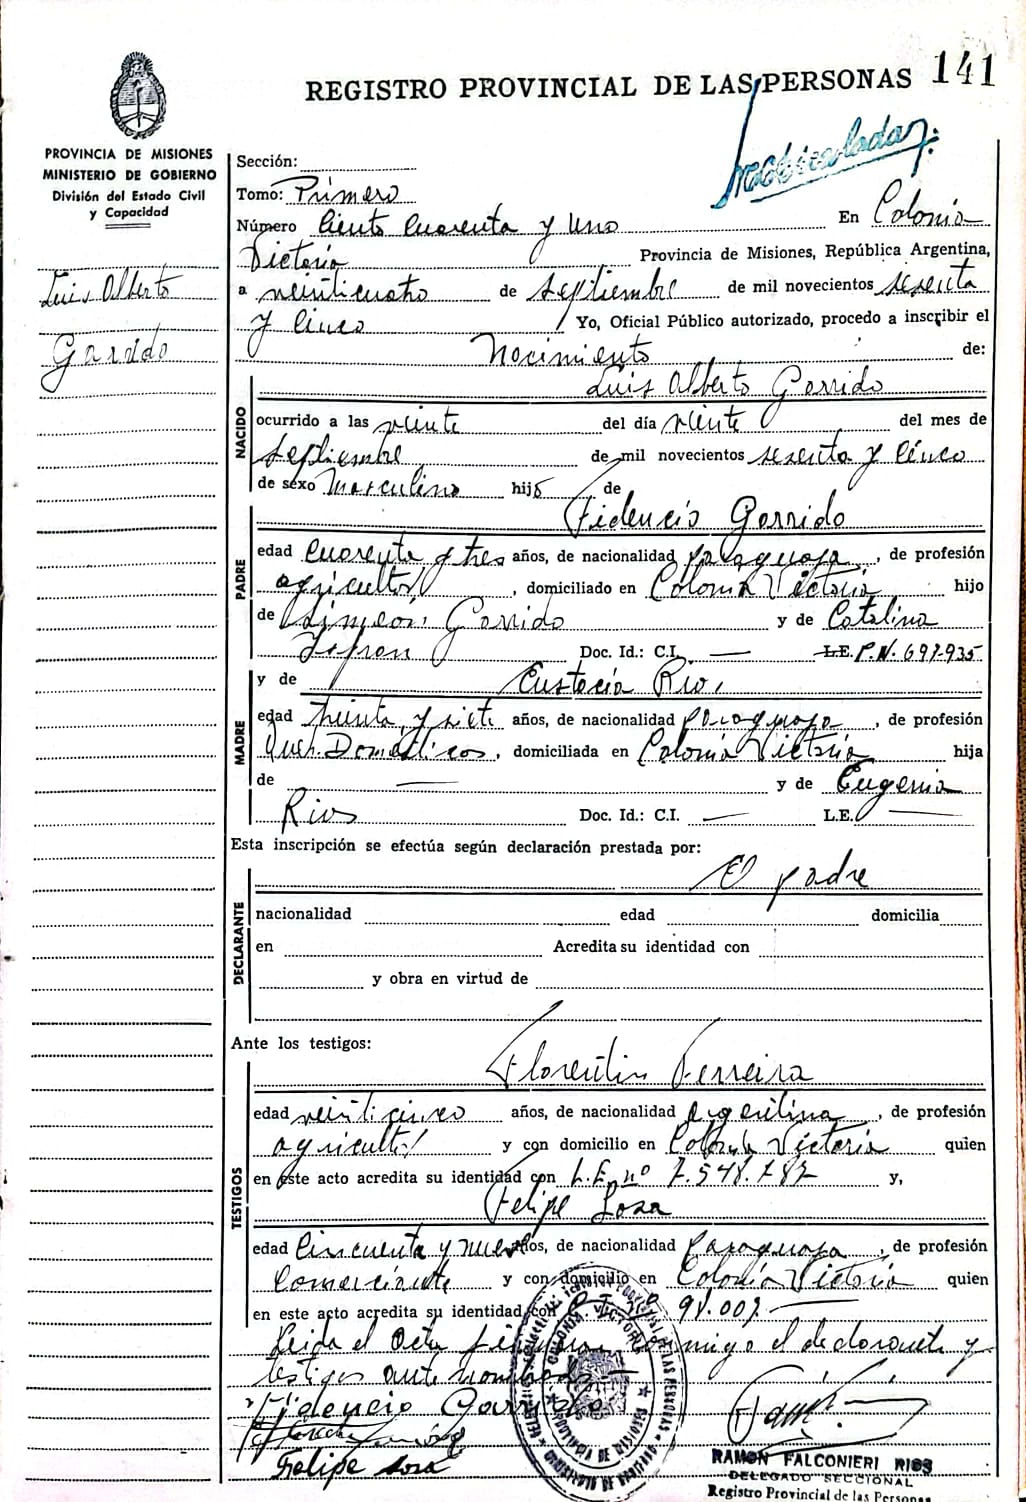 REGISTRO PROVINCIAL DE LAS PERSONAS 141
PROVINCIA DE MISIONES
MINISTERIO DE GOBIERNO
División del Estado Civil
y Capacidad
Luis Alberto
Garrido
Sección:
Tomo: Primero
Número Ciento Cuarenta y Uno En Colonia
Victoria Provincia de Misiones, República Argentina,
a veinticuatro de septiembre de mil novecientos sesenta
y cinco Yo, Oficial Público autorizado, procedo a inscribir el
Nacimiento de:
Luis Alberto Garrido
NACIDO
ocurrido a las veinte del día veinte del mes de
septiembre de mil novecientos sesenta y cinco
de sexo Masculino hijo de
Fidencio Garrido
PADRE
edad Cuarenta y tres años, de nacionalidad paraguaya, de profesión
agricultor, domiciliado en Colonia Victoria hijo
de Garrido y de Catalina
Doc. Id.: C.I. — L.E. P.N. 697.935
y de Eustacia Rios
MADRE
edad treinta y siete años, de nacionalidad paraguaya, de profesión
Queh. Domésticos, domiciliada en Colonia Victoria hija
de — y de Eugenia
Rios Doc. Id.: C.I. — L.E. —
Esta inscripción se efectúa según declaración prestada por:
El padre
DECLARANTE
nacionalidad edad domicilia
en Acredita su identidad con
y obra en virtud de
Ante los testigos:
Florentin Ferreira
TESTIGOS
edad veinticinco años, de nacionalidad argentina, de profesión
agricultor y con domicilio en Colonia Victoria quien
en este acto acredita su identidad con L.E. nº 7.548.787 y,
Felipe Sosa
edad Cincuenta y nueve años, de nacionalidad Paraguaya, de profesión
Comerciante y con domicilio en Colonia Victoria quien
en este acto acredita su identidad con
Leida el Acta conmigo el declarante y
testigos ante nombrados
Fidencio Garrido
Felipe Sosa
RAMON FALCONIERI RIOS
DELEGADO SECCIONAL
Registro Provincial de las Personas